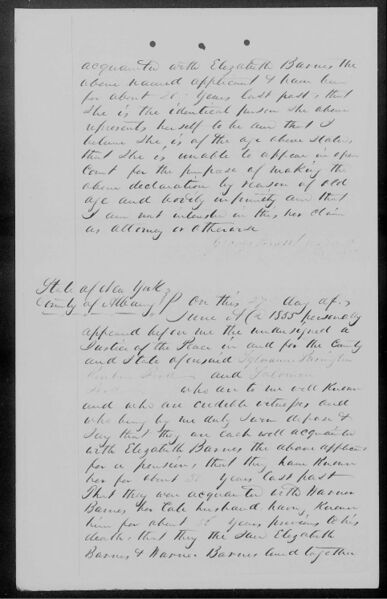 acquainted with Elizabeth Barnes the
above named applicant & have been
for about years last past, that
She is the identical person She above
represents herself to be and that I
believe She is of the age above stated
that She is unable to appear in open
Court for the purpose of making the
above declaration by reason of old
age and bodily infirmity and that
I am not interested in this her claim
as attorney or otherwise
State of New York
County of Albany On this day of
June A D 1855 personally
appeared before me the undersigned a
Justice of the Peace in and for the County
and State aforesaid
and
who are to me well known
and who are credible witnesses and
who being by me duly Sworn depose &
Say that they are each well acquainted
with Elizabeth Barnes the above applicant
for a pension, that they have known
her for about years last past
That they were acquainted with Warner
Barnes her late husband having known
him for about years previous to his
death, that they the Said Elizabeth
Barnes & Warner Barnes lived together